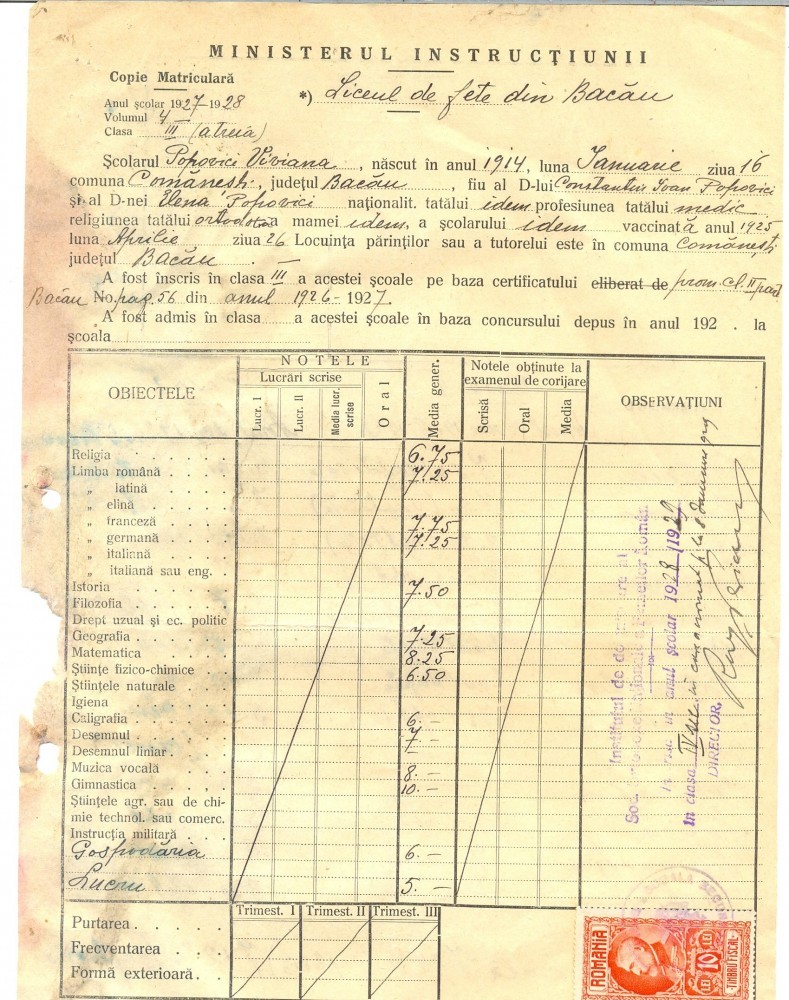 MINISTERUL INSTRUCȚIUNII
Copie Matriculară
Anul școlar 1927-1928
Volumul 4
Clasa III (a treia)
*) Liceul de fete din Bacău
Școlarul Popovici Viviana, născut în anul 1914, luna Ianuarie ziua 16
comuna Comănești, județul Bacău, fiu al D-lui Constantin Ioan Popovici
și al D-nei Elena Popovici naționalit. tatălui idem profesiunea tatălui medic
religiunea tatălui ortodoxă a mamei idem, a școlarului idem vaccinată anul 1925
luna Aprilie ziua 26 Locuința părinților sau a tutorelui este în comuna Comănești
județul Bacău. —
A fost înscris în clasa III a acestei școale pe baza certificatului eliberat de prom. cl. II
Bacău No. pag. 56 din anul 1926-1927.
A fost admis în clasa a acestei școale în baza concursului depus în anul 192 . la
școala
OBIECTELE
NOTELE
Lucrări scrise
Lucr. I
Lucr. II
Media lucr. scrise
Oral
Media gener.
Notele obținute la examenul de corijare
Scrisă
Oral
Media
OBSERVAȚIUNI
Religia 6.75
Limba română 7.25
„ latină
„ elină
„ franceză 7.75
„ germană 7.25
„ italiană
„ italiană sau eng.
Istoria 7.50
Filozofia
Drept uzual și ec. politic
Geografia 7.25
Matematica 8.25
Științe fizico-chimice 6.50
Științele naturale
Igiena
Caligrafia 6.—
Desemnul 7—
Desemnul liniar 7—
Muzica vocală 8.—
Gimnastica 10.—
Științele agr. sau de chi-
mie technol. sau comerc.
Instrucția militară
Gospodăria 6.—
Lucru 5.—
Institutul de
în anul școlar 1928/1929
în clasa IV
DIRECTOR,
Trimest. I Trimest. II Trimest. III
Purtarea
Frecventarea
Formă exterioară
ROMANIA
10 LEI
TIMBRU FISCAL